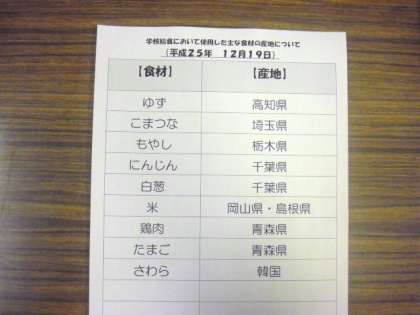 学校給食において使用した主な食材の産地について
(平成25年 12月19日)
【食材】 【産地】
ゆず 高知県
こまつな 埼玉県
もやし 栃木県
にんじん 千葉県
白葱 千葉県
米 岡山県・島根県
鶏肉 青森県
たまご 青森県
さわら 韓国